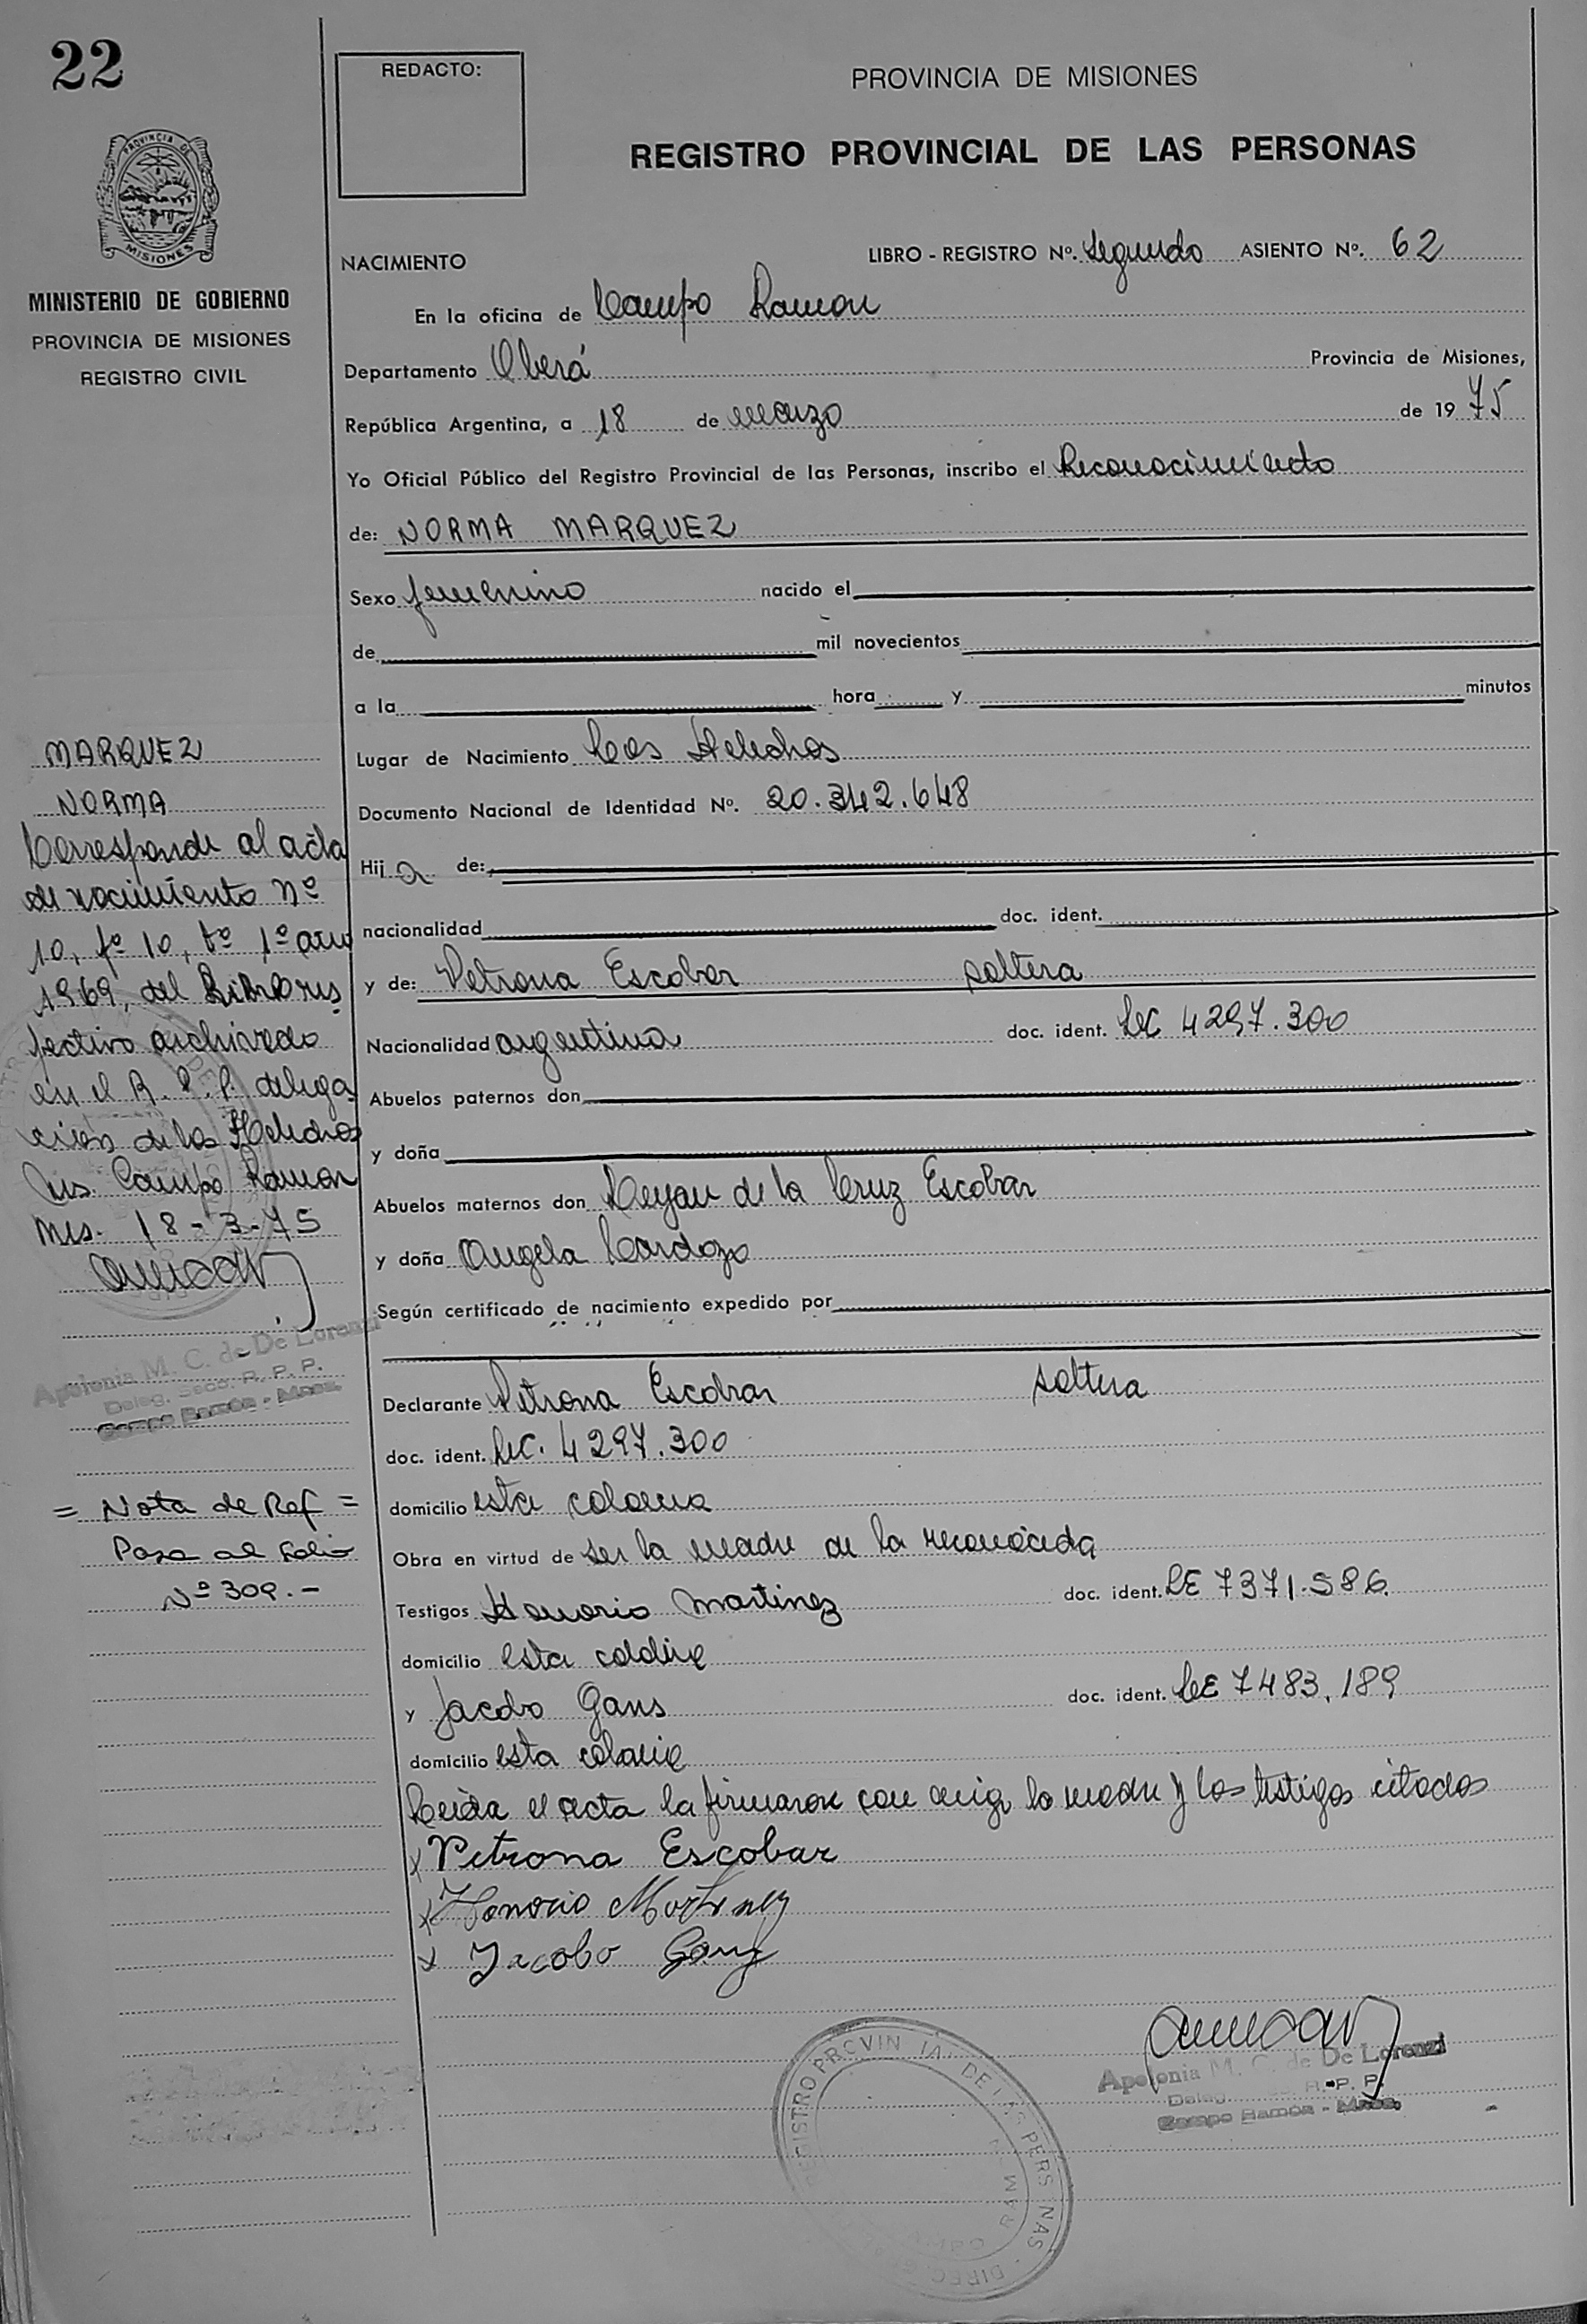 22
REDACTO:
PROVINCIA DE MISIONES
REGISTRO PROVINCIAL DE LAS PERSONAS
PROVINCIA DE
MISIONES
MINISTERIO DE GOBIERNO
PROVINCIA DE MISIONES
REGISTRO CIVIL
NACIMIENTO LIBRO - REGISTRO Nº. Segundo ASIENTO Nº. 62
En la oficina de Campo Ramon
Departamento Oberá Provincia de Misiones,
República Argentina, a 18 de marzo de 1975
Yo Oficial Público del Registro Provincial de las Personas, inscribo el Reconocimiento
de: NORMA MARQUEZ
Sexo femenino nacido el
de mil novecientos
a la hora y minutos
Lugar de Nacimiento Los Helechos
Documento Nacional de Identidad Nº. 20.342.648
Hija de:
nacionalidad doc. ident.
y de: Petrona Escobar soltera
Nacionalidad argentina doc. ident. LC 4297.300
Abuelos paternos don
y doña
Abuelos maternos don de la Cruz Escobar
y doña Angela Cardozo
Según certificado de nacimiento expedido por
Declarante Petrona Escobar soltera
doc. ident. LC. 4297.300
domicilio esta colonia
Obra en virtud de ser la madre de la reconocida
Testigos Honorio Martinez doc. ident. LE 7371.586
domicilio esta colonia
y Jacobo Gans doc. ident. LE 7483.189
domicilio esta colonia
Leida el acta la firmaron con migo la madre y los testigos citados
x Petrona Escobar
x Honorio Martinez
x Jacobo Ganz
Apolonia M. C. de De Lorenzi
Deleg. R. P. P.
Campo Ramón - Mnes.
REGISTRO PROVINCIAL DE LAS PERSONAS - DIREC
MARQUEZ
NORMA
Corresponde al acta
de nacimiento nº
10, fº 10, tº 1º año
1969, del Libro res
pectivo archivado
en el R. P. P. delega
cion de los Helechos
Mis. Campo Ramon
Mis. 18-3-75
Apolonia M. C. de De Lorenzi
Deleg. Secc. R. P. P.
Campo Ramón - Mnes.
= Nota de Ref =
Pasa al Folio
Nº 309.-